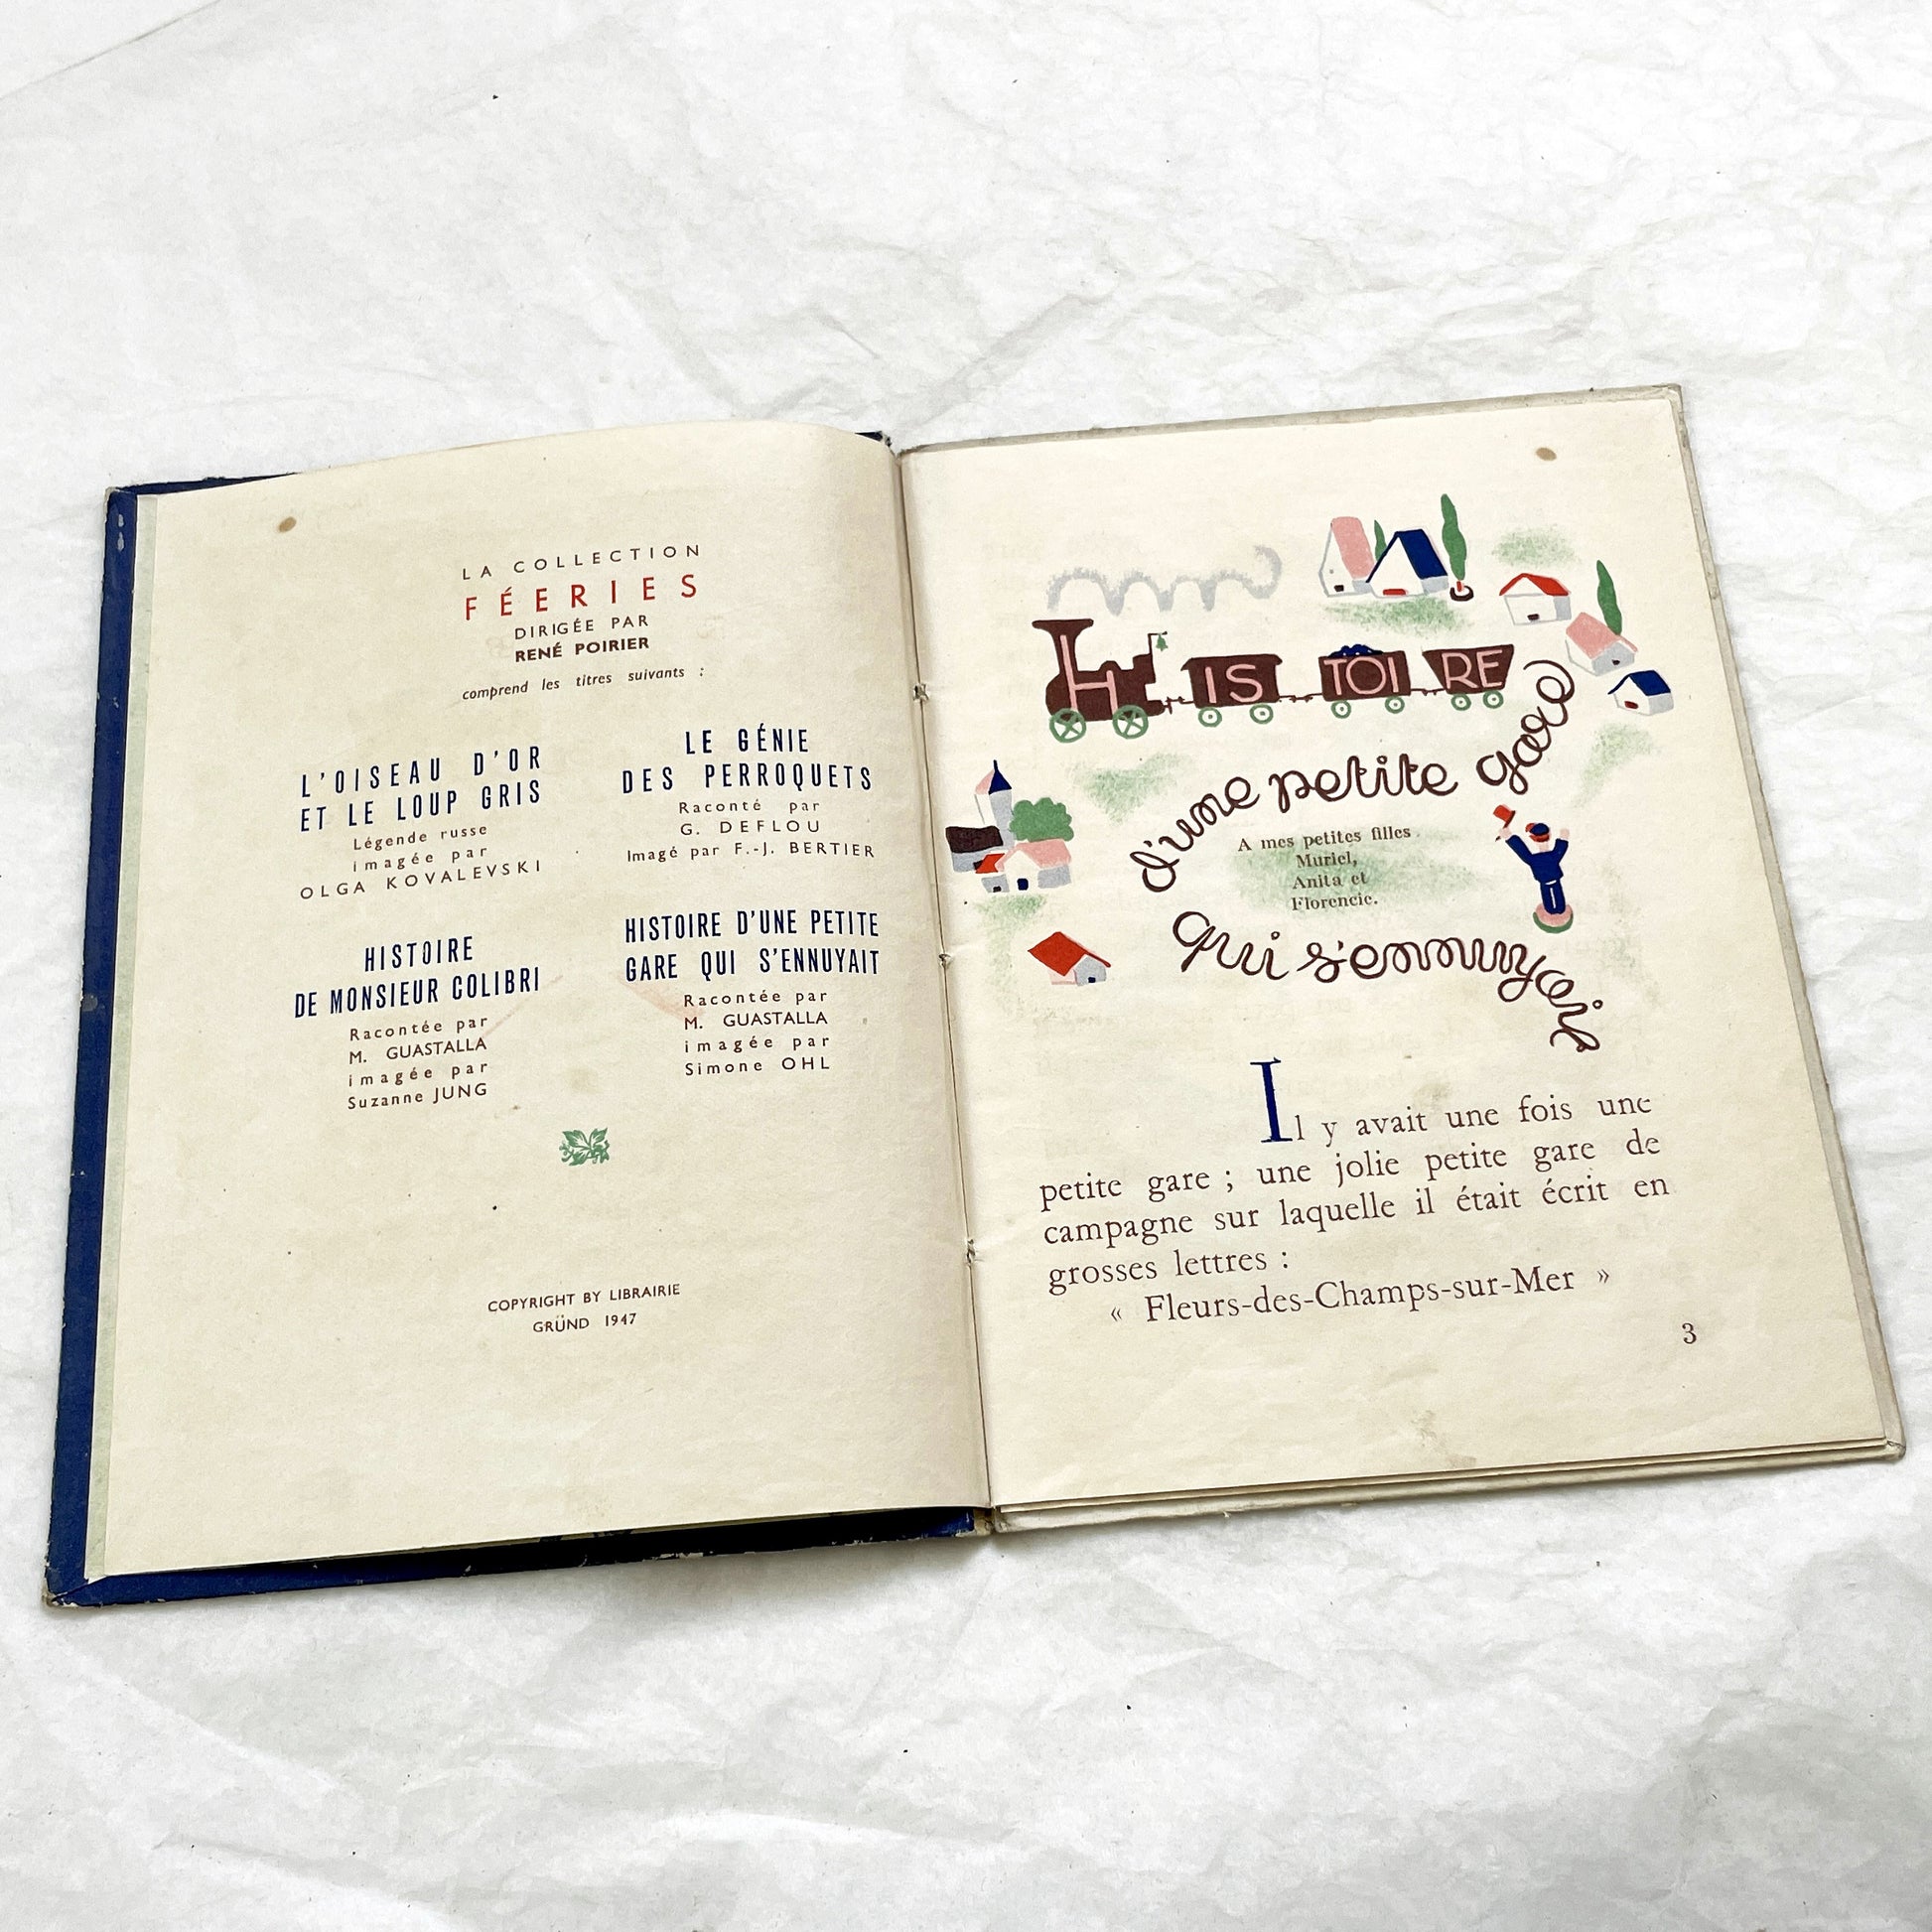 LA COLLECTION
FÉERIES
DIRIGÉE PAR
RENÉ POIRIER
comprend les titres suivants :
L'OISEAU D'OR
ET LE LOUP GRIS
Légende russe
imagée par
OLGA KOVALEVSKI
HISTOIRE
DE MONSIEUR COLIBRI
Racontée par
M. GUASTALLA
imagée par
Suzanne JUNG
LE GÉNIE
DES PERROQUETS
Raconté par
G. DEFLOU
Imagé par F.-J. BERTIER
HISTOIRE D'UNE PETITE
GARE QUI S'ENNUYAIT
Racontée par
M. GUASTALLA
imagée par
Simone OHL
COPYRIGHT BY LIBRAIRIE
GRÜND 1947
HISTOIRE
d'une petite gare
A mes petites filles
Muriel,
Anita et
Florencie.
qui s'ennuyait
Il y avait une fois une
petite gare ; une jolie petite gare de
campagne sur laquelle il était écrit en
grosses lettres :
« Fleurs-des-Champs-sur-Mer »
3